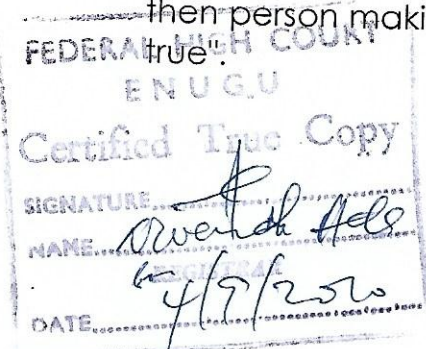 then person maki
true".
FEDERAL HIGH COURT
ENUGU
Certified True Copy
SIGNATURE
NAME
REGISTRAR
DATE 4/9/2020